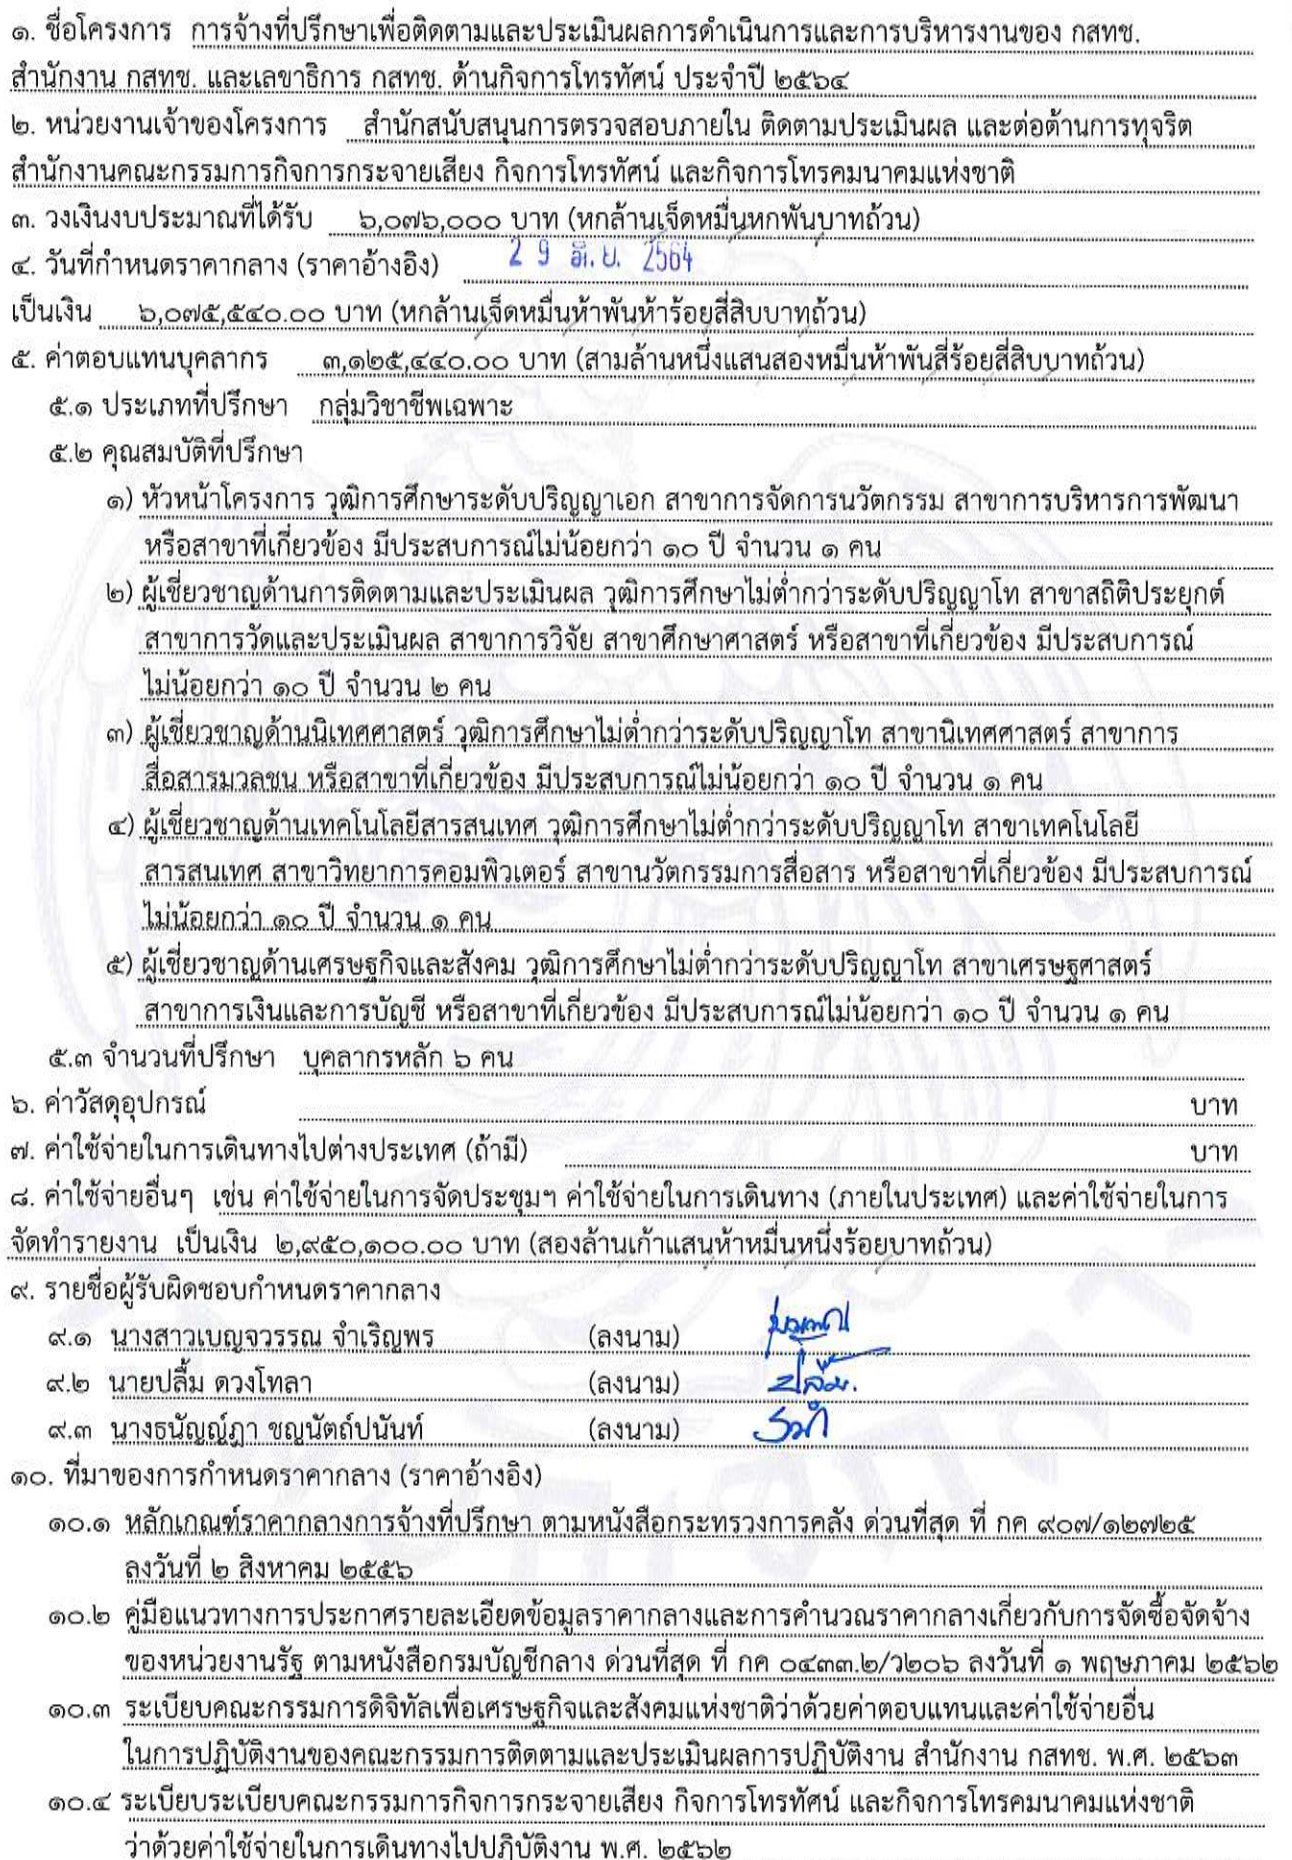 ๑. ชื่อโครงการ การจ้างที่ปรึกษาเพื่อติดตามและประเมินผลการดำเนินการและการบริหารงานของ กสทช.
สำนักงาน กสทช. และเลขาธิการ กสทช. ด้านกิจการโทรทัศน์ ประจำปี ๒๕๖๔
๒. หน่วยงานเจ้าของโครงการ สำนักสนับสนุนการตรวจสอบภายใน ติดตามประเมินผล และต่อต้านการทุจริต
สำนักงานคณะกรรมการกิจการกระจายเสียง กิจการโทรทัศน์ และกิจการโทรคมนาคมแห่งชาติ
๓. วงเงินงบประมาณที่ได้รับ ๖,๐๗๖,๐๐๐ บาท (หกล้านเจ็ดหมื่นหกพันบาทถ้วน)
๔. วันที่กำหนดราคากลาง (ราคาอ้างอิง) 29 มิ.ย. 2564
เป็นเงิน ๖,๐๗๕,๕๔๐.๐๐ บาท (หกล้านเจ็ดหมื่นห้าพันห้าร้อยสี่สิบบาทถ้วน)
๕. ค่าตอบแทนบุคลากร ๓,๑๒๕,๔๔๐.๐๐ บาท (สามล้านหนึ่งแสนสองหมื่นห้าพันสี่ร้อยสี่สิบบาทถ้วน)
๕.๑ ประเภทที่ปรึกษา กลุ่มวิชาชีพเฉพาะ
๕.๒ คุณสมบัติที่ปรึกษา
๑) หัวหน้าโครงการ วุฒิการศึกษาระดับปริญญาเอก สาขาการจัดการนวัตกรรม สาขาการบริหารการพัฒนา
หรือสาขาที่เกี่ยวข้อง มีประสบการณ์ไม่น้อยกว่า ๑๐ ปี จำนวน ๑ คน
๒) ผู้เชี่ยวชาญด้านการติดตามและประเมินผล วุฒิการศึกษาไม่ต่ำกว่าระดับปริญญาโท สาขาสถิติประยุกต์
สาขาการวัดและประเมินผล สาขาการวิจัย สาขาศึกษาศาสตร์ หรือสาขาที่เกี่ยวข้อง มีประสบการณ์
ไม่น้อยกว่า ๑๐ ปี จำนวน ๒ คน
๓) ผู้เชี่ยวชาญด้านนิเทศศาสตร์ วุฒิการศึกษาไม่ต่ำกว่าระดับปริญญาโท สาขานิเทศศาสตร์ สาขาการ
สื่อสารมวลชน หรือสาขาที่เกี่ยวข้อง มีประสบการณ์ไม่น้อยกว่า ๑๐ ปี จำนวน ๑ คน
๔) ผู้เชี่ยวชาญด้านเทคโนโลยีสารสนเทศ วุฒิการศึกษาไม่ต่ำกว่าระดับปริญญาโท สาขาเทคโนโลยี
สารสนเทศ สาขาวิทยาการคอมพิวเตอร์ สาขานวัตกรรมการสื่อสาร หรือสาขาที่เกี่ยวข้อง มีประสบการณ์
ไม่น้อยกว่า ๑๐ ปี จำนวน ๑ คน
๕) ผู้เชี่ยวชาญด้านเศรษฐกิจและสังคม วุฒิการศึกษาไม่ต่ำกว่าระดับปริญญาโท สาขาเศรษฐศาสตร์
สาขาการเงินและการบัญชี หรือสาขาที่เกี่ยวข้อง มีประสบการณ์ไม่น้อยกว่า ๑๐ ปี จำนวน ๑ คน
๕.๓ จำนวนที่ปรึกษา บุคลากรหลัก ๖ คน
๖. ค่าวัสดุอุปกรณ์ บาท
๗. ค่าใช้จ่ายในการเดินทางไปต่างประเทศ (ถ้ามี) บาท
๘. ค่าใช้จ่ายอื่นๆ เช่น ค่าใช้จ่ายในการจัดประชุมฯ ค่าใช้จ่ายในการเดินทาง (ภายในประเทศ) และค่าใช้จ่ายในการ
จัดทำรายงาน เป็นเงิน ๒,๙๕๐,๑๐๐.๐๐ บาท (สองล้านเก้าแสนห้าหมื่นหนึ่งร้อยบาทถ้วน)
๙. รายชื่อผู้รับผิดชอบกำหนดราคากลาง
๙.๑ นางสาวเบญจวรรณ จำเริญพร (ลงนาม)
๙.๒ นายปลื้ม ดวงโทลา (ลงนาม) ปลื้ม.
๙.๓ นางธนัญญ์ภา ชญนัตถ์ปนันท์ (ลงนาม)
๑๐. ที่มาของการกำหนดราคากลาง (ราคาอ้างอิง)
๑๐.๑ หลักเกณฑ์ราคากลางการจ้างที่ปรึกษา ตามหนังสือกระทรวงการคลัง ด่วนที่สุด ที่ กค ๙๐๗/๑๒๗๒๕
ลงวันที่ ๒ สิงหาคม ๒๕๕๖
๑๐.๒ คู่มือแนวทางการประกาศรายละเอียดข้อมูลราคากลางและการคำนวณราคากลางเกี่ยวกับการจัดซื้อจัดจ้าง
ของหน่วยงานรัฐ ตามหนังสือกรมบัญชีกลาง ด่วนที่สุด ที่ กค ๐๔๓๓.๒/ว๒๐๖ ลงวันที่ ๑ พฤษภาคม ๒๕๖๒
๑๐.๓ ระเบียบคณะกรรมการดิจิทัลเพื่อเศรษฐกิจและสังคมแห่งชาติว่าด้วยค่าตอบแทนและค่าใช้จ่ายอื่น
ในการปฏิบัติงานของคณะกรรมการติดตามและประเมินผลการปฏิบัติงาน สำนักงาน กสทช. พ.ศ. ๒๕๖๓
๑๐.๔ ระเบียบระเบียบคณะกรรมการกิจการกระจายเสียง กิจการโทรทัศน์ และกิจการโทรคมนาคมแห่งชาติ
ว่าด้วยค่าใช้จ่ายในการเดินทางไปปฏิบัติงาน พ.ศ. ๒๕๖๒